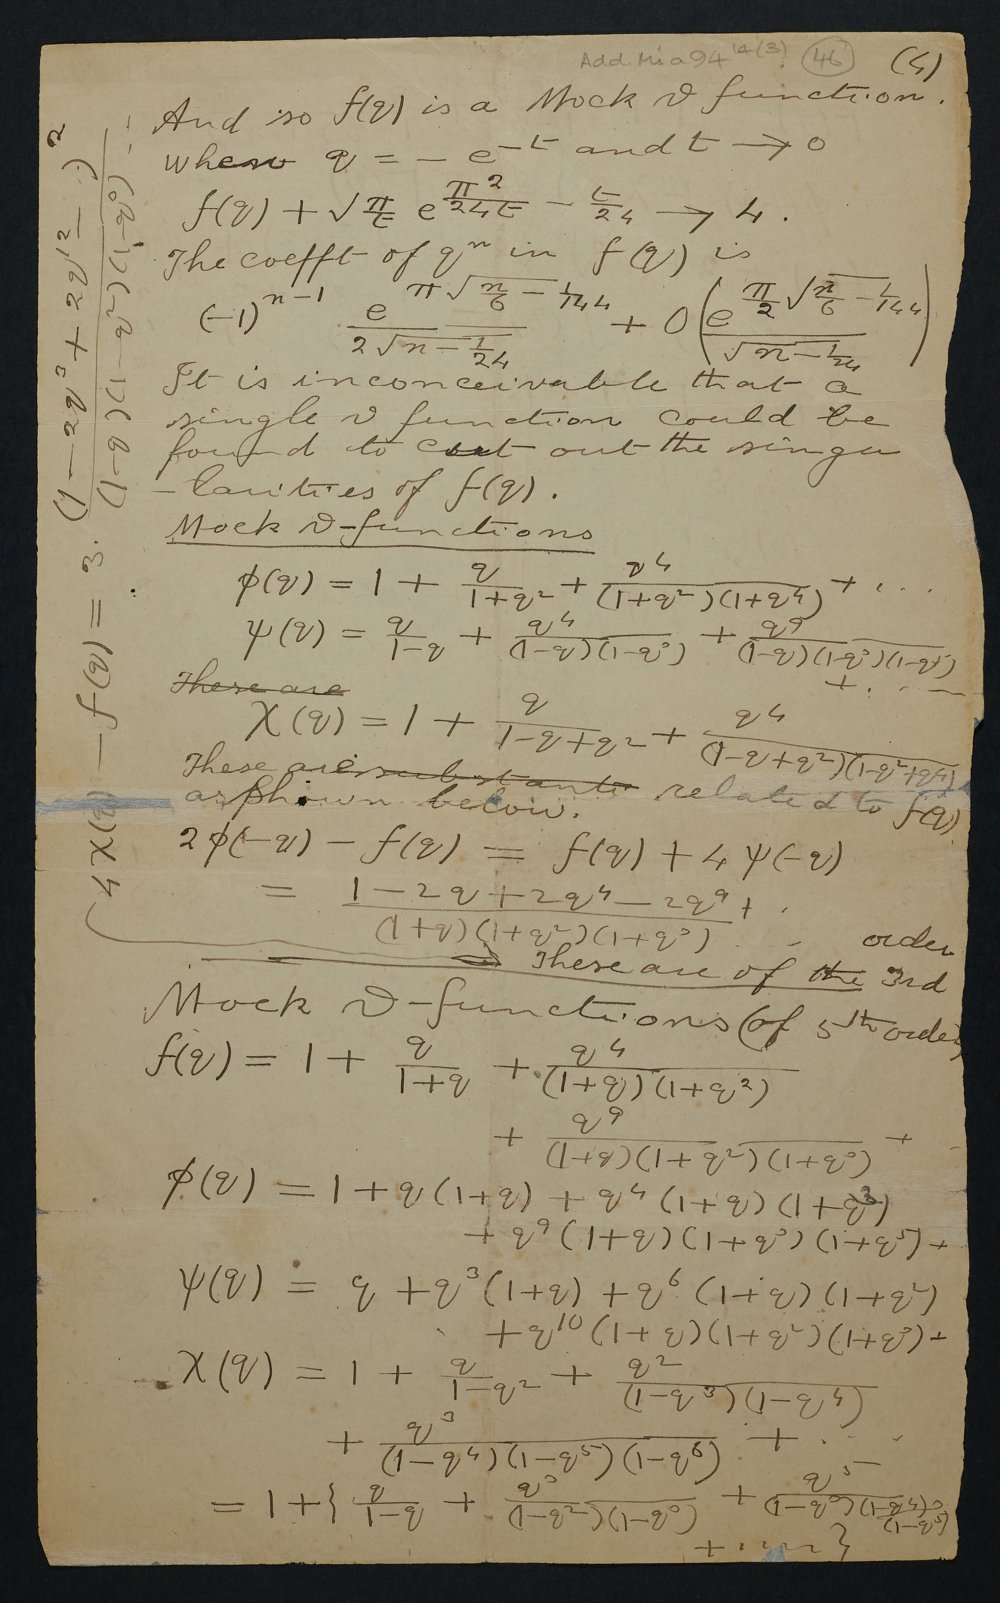 Add. Ms a 94 14(3) (46) (4)
And so f(q) is a Mock ϑ function.
When q = − e^{−t} and t → 0
f(q) + √(π/t) e^{π²/24t − t/24} → 4.
The coefft of q^n in f(q) is
(−1)^{n−1} e^{π√(n/6 − 1/144)} / 2√(n − 1/24) + O( e^{π/2 √(n/6 − 1/144)} / √(n − 1/24) )
It is inconceivable that a
single ϑ function could be
found to cut out the singu
-larities of f(q).
Mock ϑ-functions
φ(q) = 1 + q/(1+q²) + q⁴/(1+q²)(1+q⁴) + ...
ψ(q) = q/(1−q) + q⁴/(1−q)(1−q³) + q⁹/(1−q)(1−q³)(1−q⁵)
+ ...
These are
χ(q) = 1 + q/(1−q+q²) + q⁴/(1−q+q²)(1−q²+q⁴)
These are related to f(q)
as shown below.
2φ(−q) − f(q) = f(q) + 4ψ(−q)
= (1 − 2q + 2q⁴ − 2q⁹ + ..)/(1+q)(1+q²)(1+q³) ...
4χ(q) − f(q) = 3. (1 − 2q³ + 2q¹² − ..)²/(1−q)(1−q²)(1−q³) ...
order
These are of the 3rd
Mock ϑ-functions (of 5th order)
f(q) = 1 + q/(1+q) + q⁴/(1+q)(1+q²)
+ q⁹/(1+q)(1+q²)(1+q³) +
φ(q) = 1 + q(1+q) + q⁴(1+q)(1+q³)
+ q⁹(1+q)(1+q³)(1+q⁵) +
ψ(q) = q + q³(1+q) + q⁶(1+q)(1+q²)
+ q¹⁰(1+q)(1+q²)(1+q³) +
χ(q) = 1 + q/(1−q²) + q²/(1−q³)(1−q⁴)
+ q³/(1−q⁴)(1−q⁵)(1−q⁶) + ...
= 1 + { q/(1−q) + q³/(1−q²)(1−q³) + q⁵/(1−q³)(1−q⁴)(1−q⁵)
+ .... }